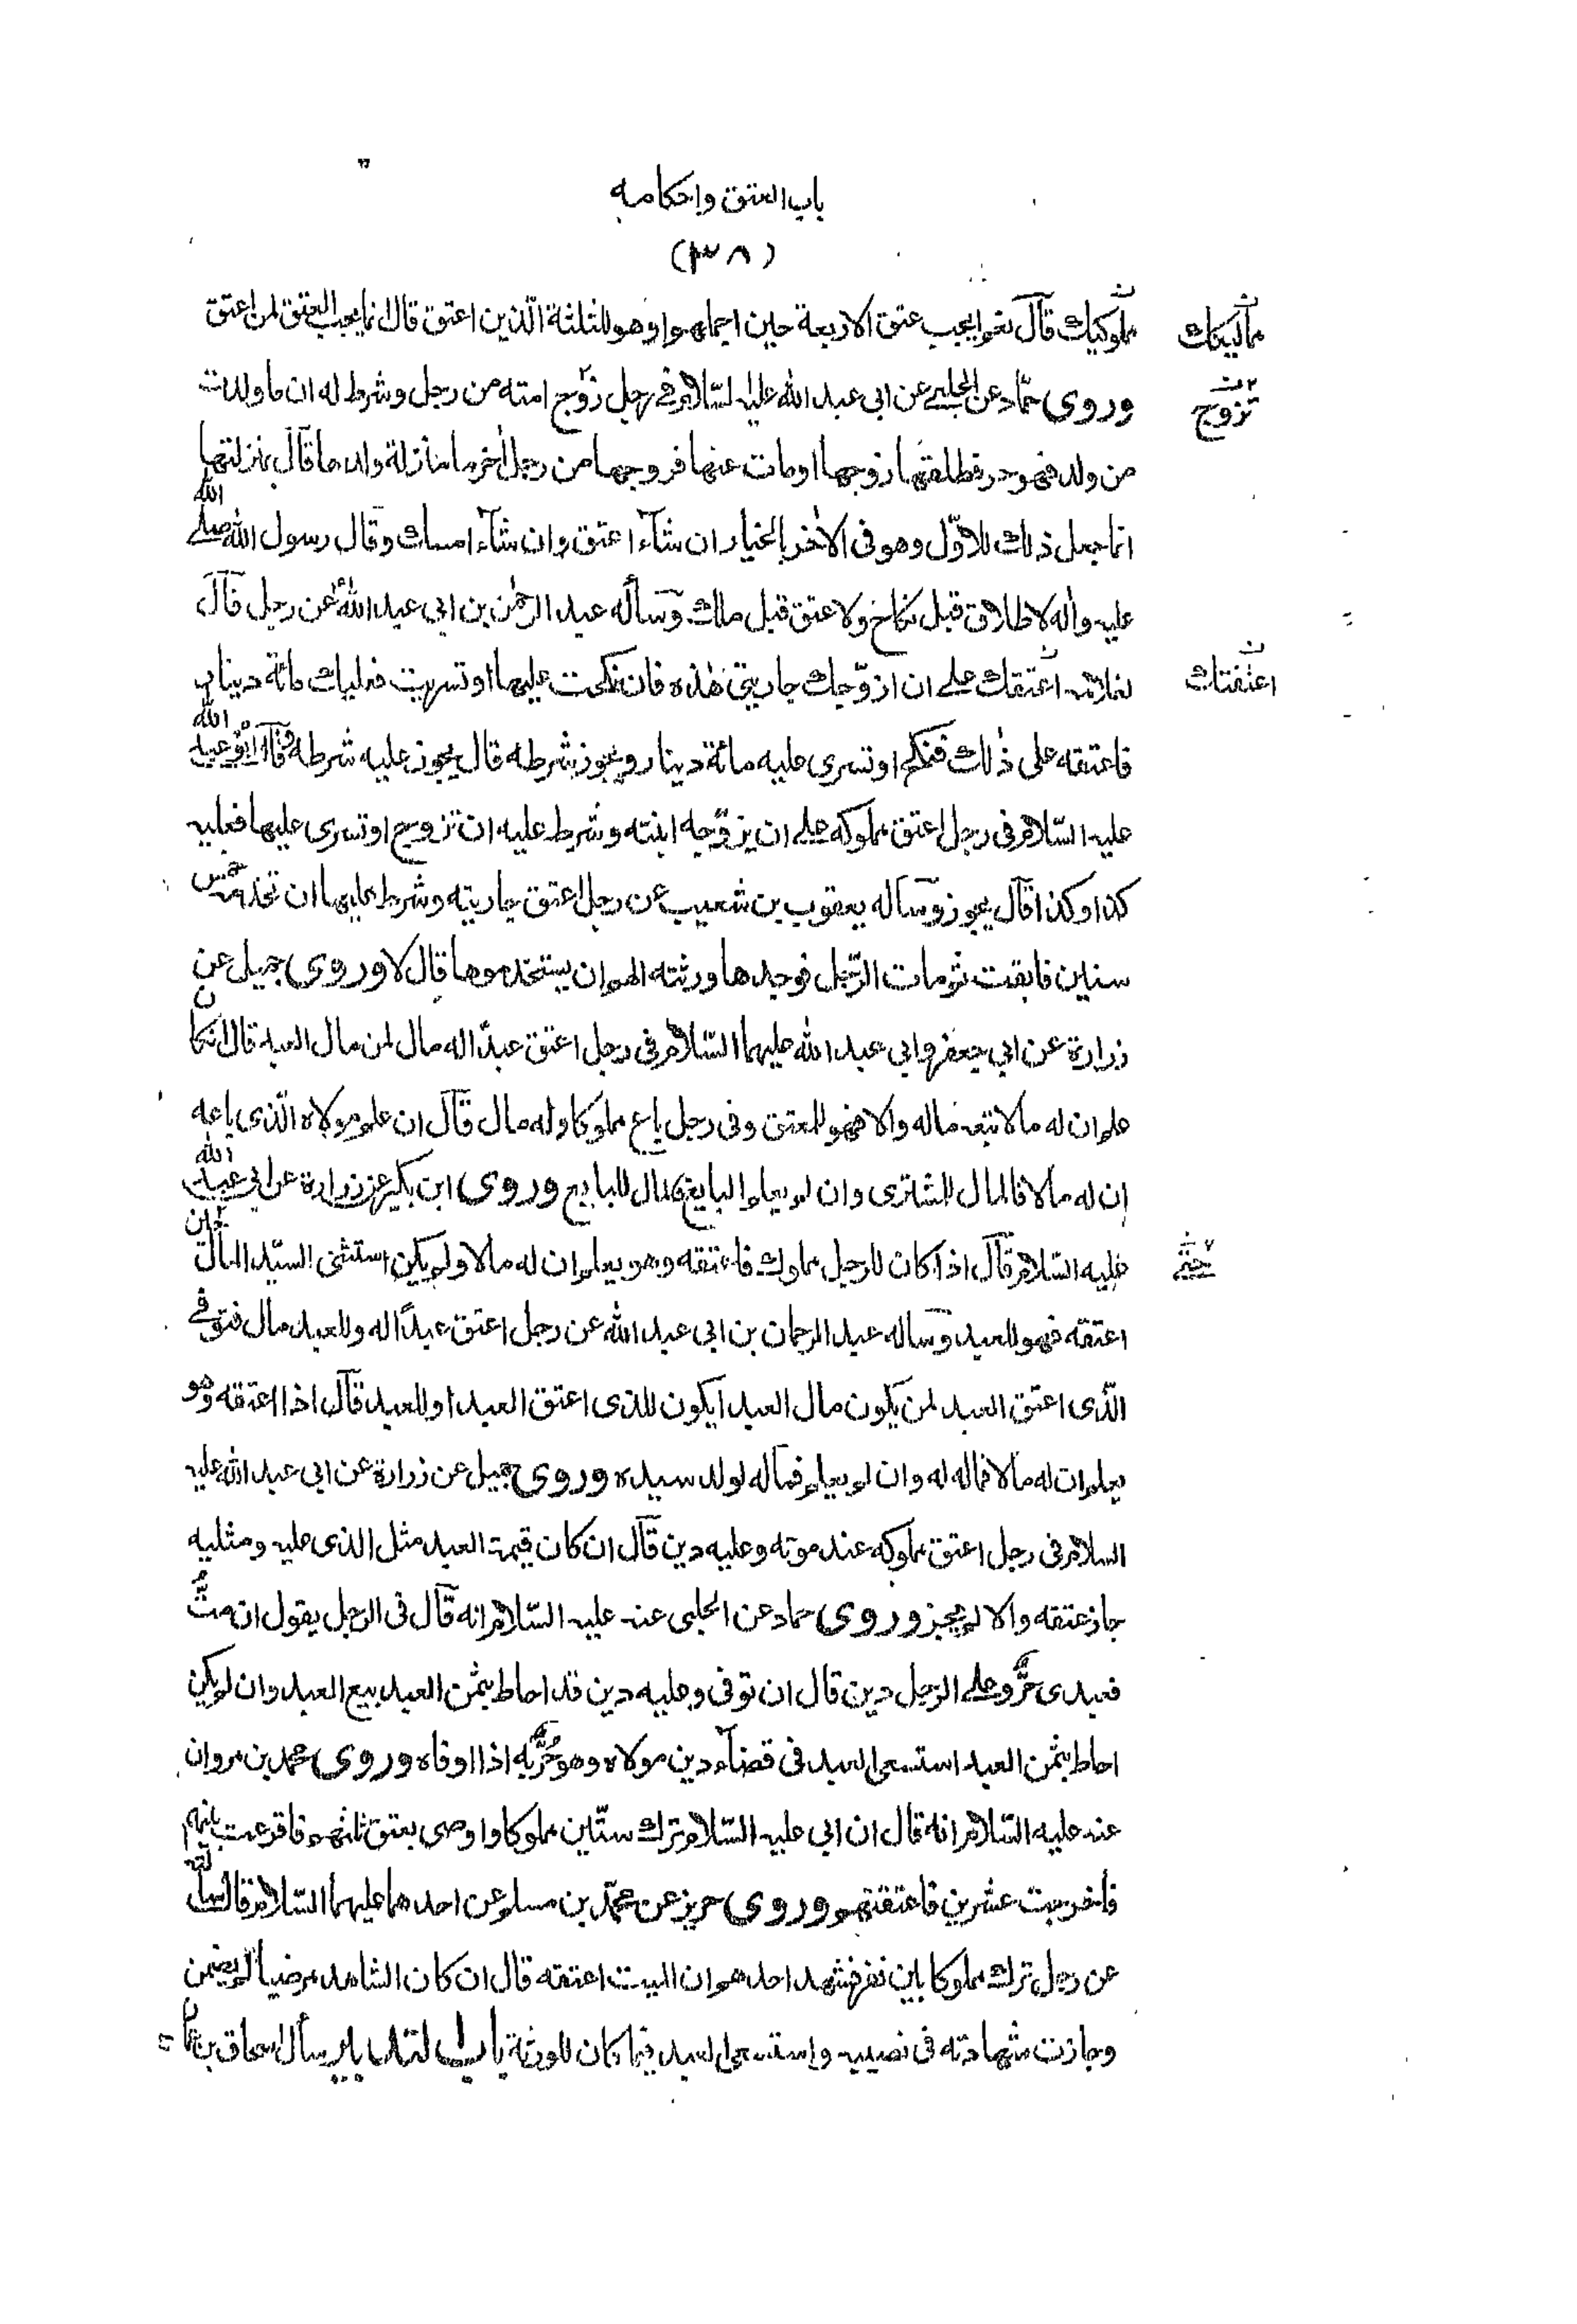 باب العتق واحكامه
(٣٨)
مملوكيك قال نعم يجب عتق الاربعة حين اجملهم او هو للثلثة الّذين اعتق قال انما يجب العتق لمن اعتق
مماليكك
وروى حمّاد عن الحلبي عن ابى عبد الله عليه السّلام فى رجل زوّج امته من رجل وشرط له ان ما ولدت
تزوج
من ولد فهو حر فطلقها زوجها او مات عنها فزوجها من رجل اٰخر ما منزلة ولدها قال بمنزلتها
انما جعل ذلك للاوّل وهو فى الاٰخر بالخيار ان شاء اعتق وان شاء امسك وقال رسول الله صلى الله
عليه واٰله لا طلاق قبل نكاح ولا عتق قبل ملك وسأله عبد الرحمٰن بن ابى عبد الله عن رجل قال
لغلامه اعتقك على ان ازوّجك جاريتى هٰذه فان نكحت عليها او تسريت فعليك مائة دينار
اعتقتك
فاعتقه على ذٰلك فنكح او تسرى عليه مائة دينار ويجوز شرطه قال يجوز عليه شرطه وقال ابو عبد الله
عليه السّلام فى رجل اعتق مملوكه على ان يزوّجه ابنته وشرط عليه ان تزوج او تسرى عليها فعليه
كذا وكذا قال يجوز وسأله يعقوب بن شعيب عن رجل اعتق جاريته وشرط عليها ان تخدمه خمس
سنين فابقت ثم مات الرّجل فوجدها ورثته الهم ان يستخدموها قال لا وروى جميل عن
زرارة عن ابى جعفر وابى عبد الله عليهما السّلام فى رجل اعتق عبدًا له مال لمن مال العبد قال ان كان
علم ان له مالا تبعه ماله والا فهو للمعتق وفى رجل باع مملوكا وله مال قال ان علم مولاه الّذى باعه
ان له مالا فالمال للمشترى وان لم يعلم البايع فالمال للبايع وروى ابن بكير عن زرارة عن ابى عبد الله
عليه السّلام قال اذا كان للرجل مملوك فاعتقه وهو يعلم ان له مالا ولم يكن استثنى السيّد المال حين
اعتقه فهو للعبد وسأله عبد الرحمان بن ابى عبد الله عن رجل اعتق عبدًا له وللعبد مال فتوفى
الّذى اعتق العبد لمن يكون مال العبد ايكون للذى اعتق العبد او للعبد قال اذا اعتقه وهو
يعلم ان له مالا فماله له وان لم يعلم فماله لولد سيده وروى جميل عن زرارة عن ابى عبد الله عليه
السلام فى رجل اعتق مملوكه عند موته وعليه دين قال ان كان قيمة العبد مثل الذى عليه ومثليه
جاز عتقه والا لم يجز وروى حماد عن الحلبى عنه عليه السّلام انه قال فى الرجل يقول ان متُّ
فعبدى حرٌّ وعلى الرجل دين قال ان توفى وعليه دين قد احاط بثمن العبد بيع العبد وان لم يكن
احاط بثمن العبد استسعى العبد فى قضاء دين مولاه وهو حُرٌّ به اذا اوفاه وروى محمد بن مروان
عنه عليه السّلام انه قال ان ابى عليه السّلام ترك ستّين مملوكا واوصى بعتق ثلثهم فاقرعت بينهم
فاخرجت عشرين فاعتقتهم وروى حريز عن محمّد بن مسلم عن احدهما عليهما السّلام قال سألته
عن رجل ترك مملوكا بين نفر فشهد احدهم ان الميت اعتقه قال ان كان الشاهد مرضيا لم يضمن
وجازت شهادته فى نصيبه واستسعى العبد فيما كان للورثة باب التدبير سأل اسحاق بن عمار